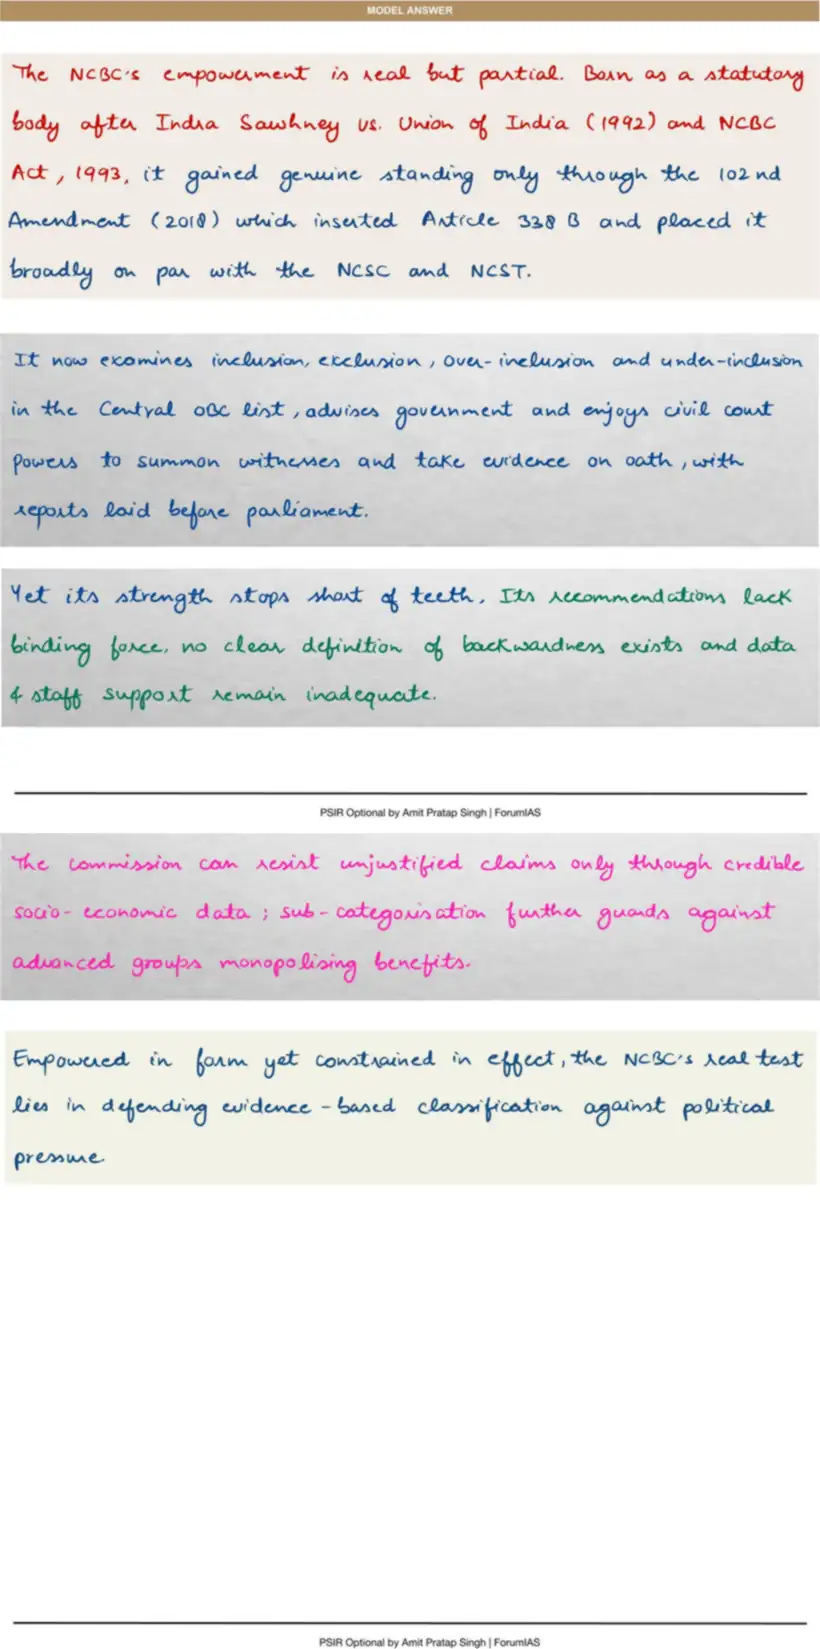 MODEL ANSWER
The NCBC's empowerment is real but partial. Born as a statutory
body after Indra Sawhney vs. Union of India (1992) and NCBC
Act, 1993, it gained genuine standing only through the 102nd
Amendment (2018) which inserted Article 338 B and placed it
broadly on par with the NCSC and NCST.
It now examines inclusion, exclusion, over-inclusion and under-inclusion
in the Central OBC list, advises government and enjoys civil court
powers to summon witnesses and take evidence on oath, with
reports laid before parliament.
Yet its strength stops short of teeth. Its recommendations lack
binding force, no clear definition of backwardness exists and data
& staff support remain inadequate.
PSIR Optional by Amit Pratap Singh | ForumIAS
The commission can resist unjustified claims only through credible
socio-economic data; sub-categorisation further guards against
advanced groups monopolising benefits.
Empowered in form yet constrained in effect, the NCBC's real test
lies in defending evidence-based classification against political
pressure.
PSIR Optional by Amit Pratap Singh | ForumIAS